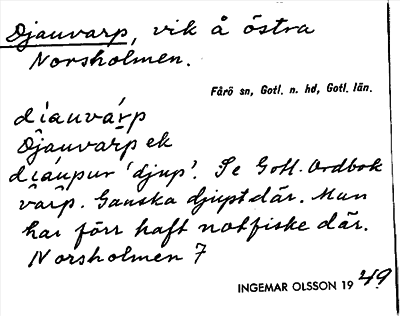 Djauvarp, vik å östra
Norsholmen.
Fårö sn, Gotl. n. hd, Gotl. län.
díauvárp
Djauvarp ek
díaupur 'djup'. Se Gotl. Ordbok
vârp. Ganska djupt där. Man
har förr haft notfiske där.
Norsholmen 7
INGEMAR OLSSON 1949